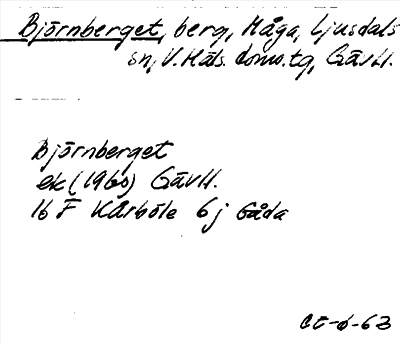 Björnberget, berg, Håga, Ljusdals
sn, V. Häls. doms. tg, Gävl.l.
Björnberget
ek (1960) Gävl.l.
16 F Kårböle 6 j Gåda
CE-6-63